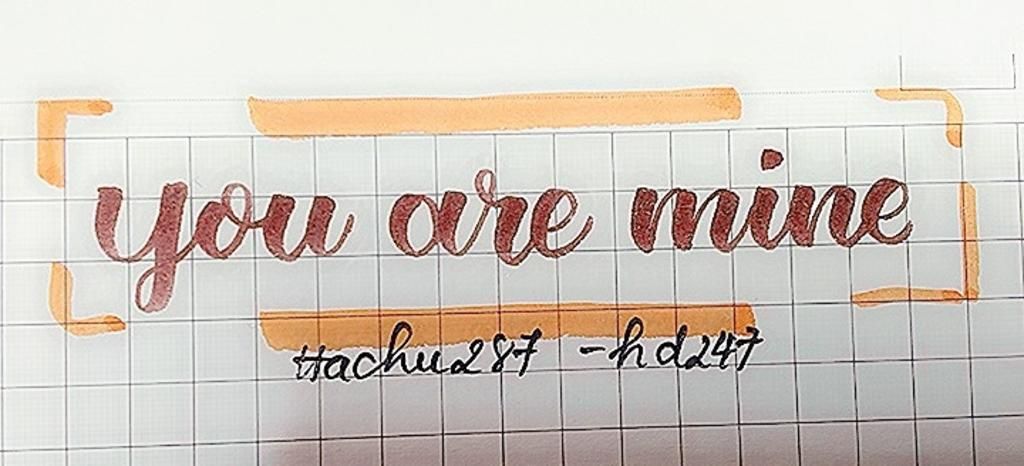 you are mine
ttachu287 -hd247